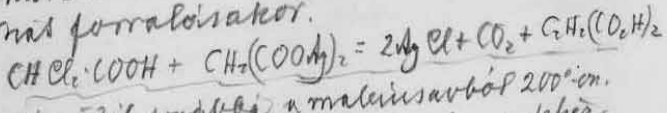 forralásakor.
CHCl₂·COOH + CH₂(COOAg)₂ = 2AgCl + CO₂ + C₂H₂(CO₂H)₂
a maleinsavból 200°-on.